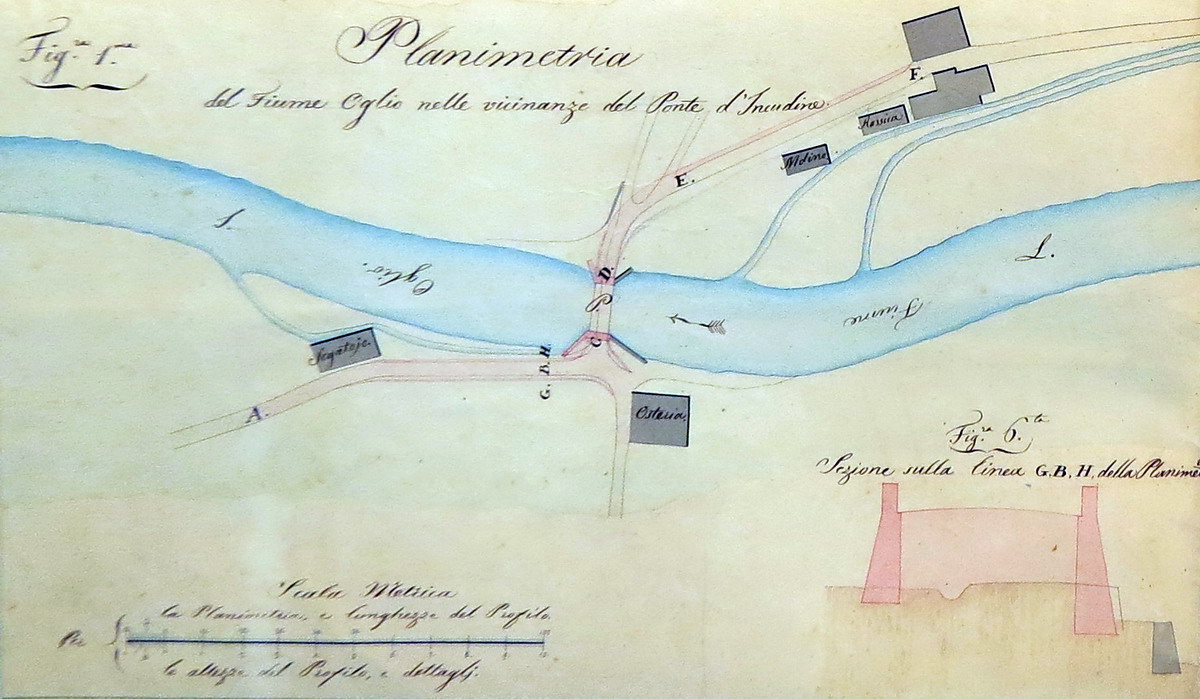 Fig.ra 1.ma
Planimetria
del Fiume Oglio nelle vicinanze del Ponte d'Incudine.
F.
Molino
E.
L.
Oglio.
D.
L.
Fiume
C
Segatoje.
G. B. H.
A.
Osteria.
Fig.ra 6.ta
Sezione sulla linea G.B.H. della Planime
Scala Metrica
Per
la Planimetria, e lunghezze del Profilo.
le altezze del Profilo, e dettaglj.